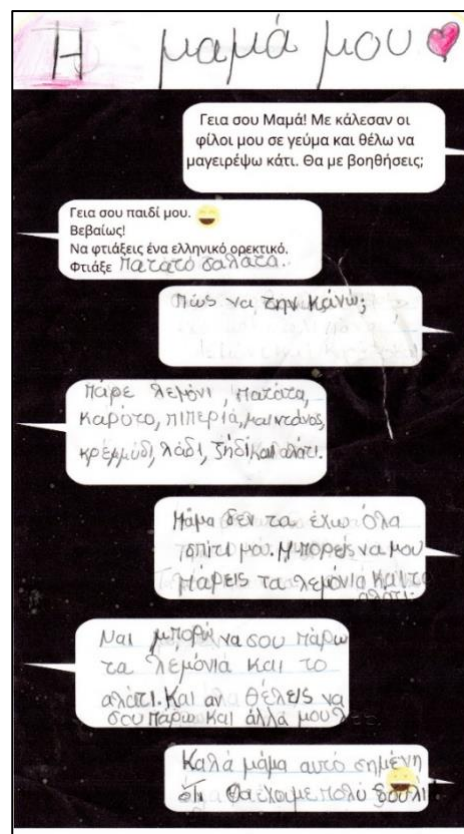 Η μαμά μου
Γεια σου Μαμά! Με κάλεσαν οι
φίλοι μου σε γεύμα και θέλω να
μαγειρέψω κάτι. Θα με βοηθήσεις;
Γεια σου παιδί μου.
Βεβαίως!
Να φτιάξεις ένα ελληνικό ορεκτικό.
Φτιάξε Πατατό σαλατα..
Πώς να την κάνω;
Πάρε λεμόνι, πατάτα,
καρότο, πιπεριά, μαιντανός,
κρεμμύδι, λάδι, ξηδί και αλάτι.
Μάμα δεν τα έχω όλα
σπίτι μου. Μπορείς να μου
πάρεις τα λεμόνια και το
αλάτι.
Ναι μπορώ να σου πάρω
τα λεμόνια και το
αλάτι. Και αν θέλεις να
σου πάρω και άλλα μου λες
Καλά μάμα αυτό σημένη
ότι θα έχουμε πολύ